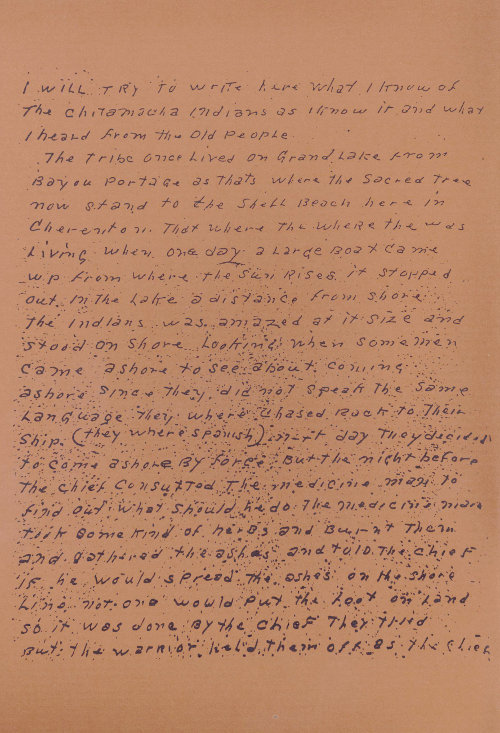 I will try to write here what I know of
The Chitamacha Indians as I know it and what
I heard from the Old People.
The tribe once lived on Grand Lake from
Bayou Portage as thats where the Sacred Tree
now stand to the Shell Beach here in
Cherenton. That where the where the was
Living when one day a Large Boat came
up from where the Sun Rises it stopped
out in the Lake a distance from shore
The Indians was amazed at it size and
stood on shore Looking when some men
came ashore to see about coming
ashore since they did not speak the same
Language they where chased back to their
ship. (they where spanish) next day they decided
to come ashore By force. But the night before
The chief consulted The medicine man to
find out what should he do. The medicine man
took some kind of herbs and Burnt Them
and gathered the ashes and told the chief
if he would spread the ashes on the shore
Line not one would put the foot on Land
so it was done By the chief They tried
But the warrior held them off as the chief